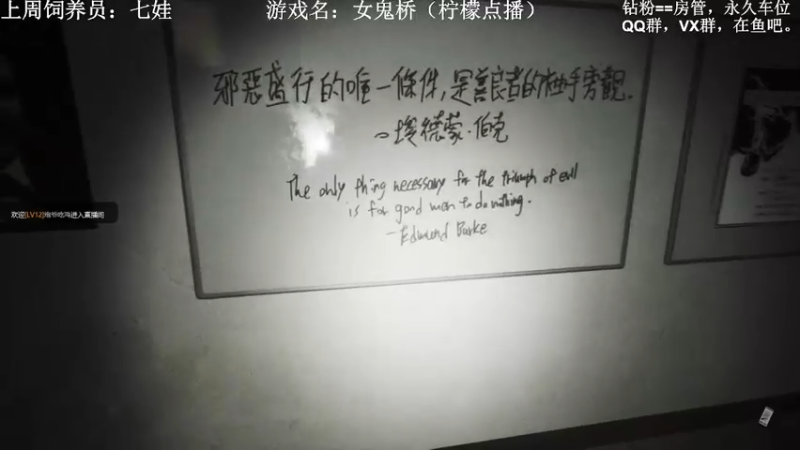 上周饲养员：七娃
游戏名：女鬼桥（柠檬点播）
钻粉==房管，永久车位
QQ群，VX群，在鱼吧。
邪惡盛行的唯一條件，是善良者的袖手旁觀．
埃德蒙·伯克
The only thing necessary for the triumph of evil
is for good men to do nothing.
-Edmund Burke
欢迎[LV12]
进入直播间